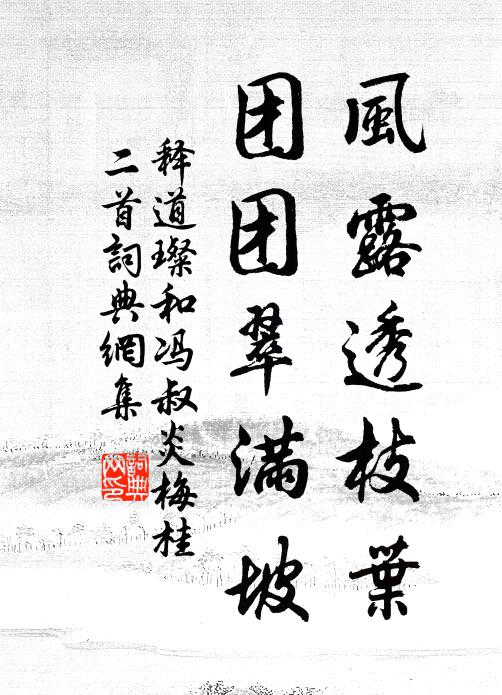 風露透枝葉
团团翠满坡
释道璨和冯叔炎梅桂
二首詞典網集
詞典網印